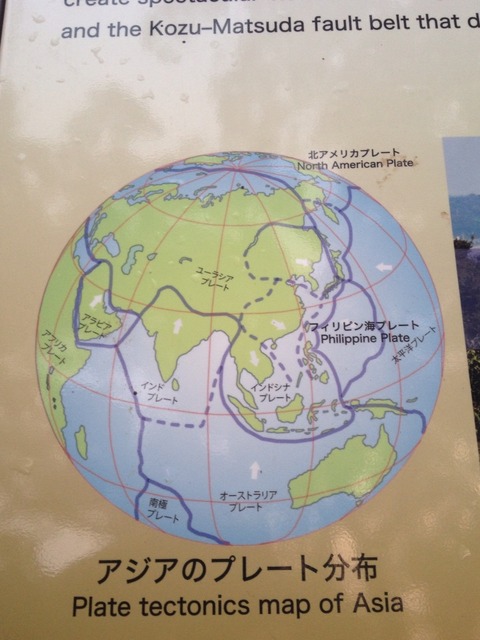 create spectacular
and the Kozu–Matsuda fault belt that d
北アメリカプレート
North American Plate
ユーラシア
プレート
アラビア
プレート
アフリカ
プレート
フィリピン海プレート
Philippine Plate
太平洋プレート
インド
プレート
インドシナ
プレート
南極
プレート
オーストラリア
プレート
アジアのプレート分布
Plate tectonics map of Asia